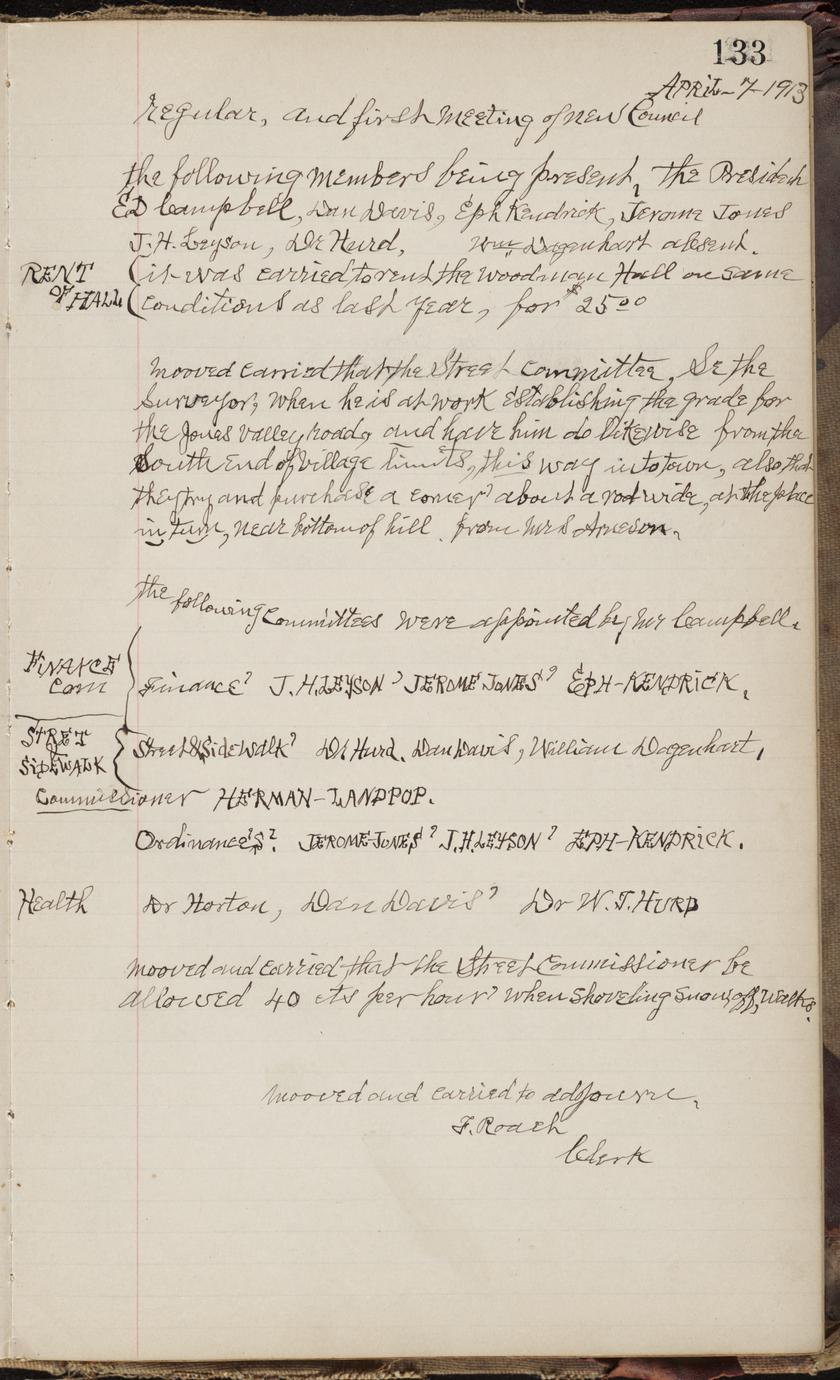 133
APRIL-7-1913
Regular, and first Meeting of New Council
the following Members being present, The President
ED Campbell, Dan Davis, Eph Kendrick, Jerome Jones
J.H. Leyson, Dr Hurd, Wm Dagenhart absent.
RENT (it was carried to rent the Woodman Hall on same
OF HALL (conditions as last year, for $25.00
mooved carried that the Street Committee, Se the
Surveyor, when he is at work Establishing the grade for
the Jones valley road, and have him do likewise from the
South End of village limits, this way into town, also, that
they try and purchase a corner about a rod wide, at the place
in turn, near bottom of hill from Mrs Arneson.
the following Committees were appointed by Mr Campbell.
FINANCE
Com Finance, J.H. LEYSON, JEROME JONES, EPH-KENDRICK.
STRET
SIDEWALK Street & Sidewalk, Dr Hurd, Dan Davis, William Dagenhart,
Commissioner HERMAN-LANDPOP.
Ordinance's. JEROME-JONES, J.H. LEYSON, EPH-KENDRICK.
Health Dr Horton, Dan Davis, Dr W.T. HURD
mooved and carried that the Street Commissioner be
allowed 40 cts per hour, when shoveling snow off, Walks.
mooved and carried to adjourn.
F. Roach
Clerk